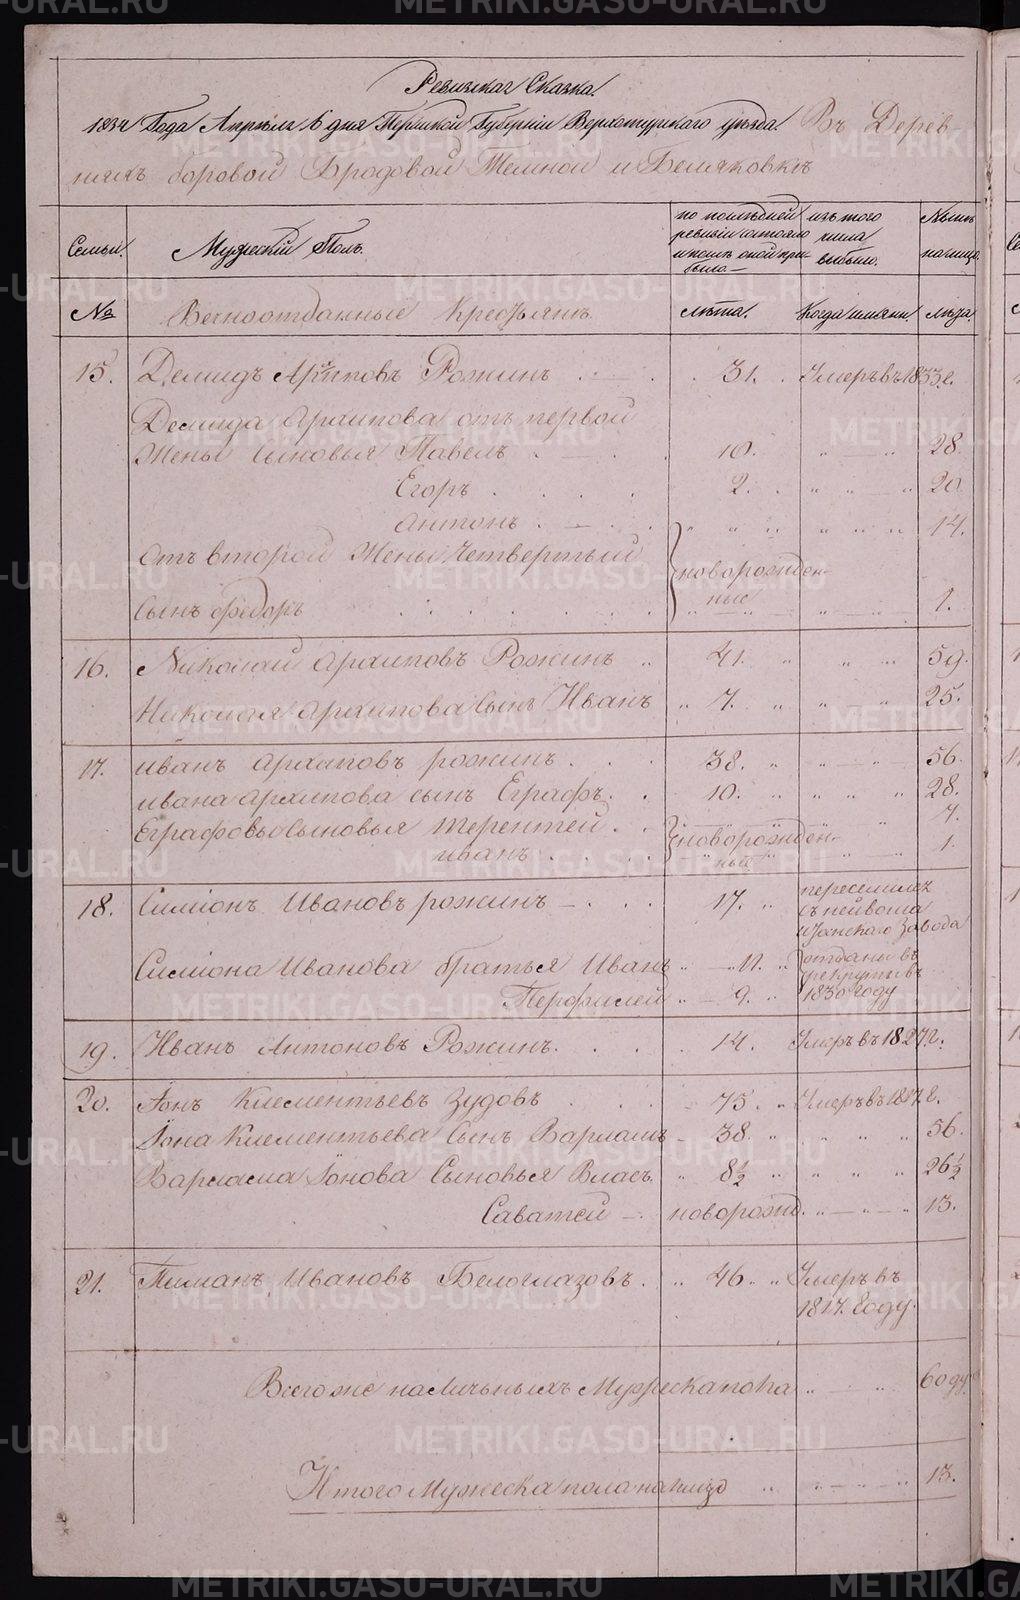 Ревизская Сказка.
1834 Года Апреля 6 дня Пермской Губернии Верхотурского уезда. Въ Дерев
няхъ боровой Бродовой Темной и Беляковкъ
Семьи.
Мужескій Полъ.
по последней ревизіи состояло и после оной при- было
изъ того числа выбыло.
Ныне на лицо.
№
Вечноотданные Крестьянъ
лета.
Когда имянн.
лета.
15. Демидъ Архиповъ Рожинъ 31. Умеръ въ 1833 г.
Демида Архипова отъ первой
Жены Сыновья Павелъ 10. 28.
Егоръ 2. 20
Антонъ 14.
Отъ второй Жены Четвертый
новорожден-
ные
Сынъ Федоръ 1.
16. Николай Архиповъ Рожинъ 41. 59.
Николая Архипова Сынъ Иванъ 7. 25.
17. Иванъ Архиповъ рожинъ 38. 56.
Ивана Архипова сынъ Еграфъ 10. 28.
Еграфовы Сыновья Терентей 7.
новорожден-
ные
Иванъ 1.
18. Симіонъ Ивановъ рожинъ 17. переселился
съ нейвоша
итанскаго Завода
Симіона Иванова братья Иванъ 11. отданы въ
рекруты въ
Перфилей 9. 1830 году
19. Иванъ Антоновъ Рожинъ. 14. Умеръ въ 1827 г.
20. Іонъ Клементьевъ Зудовъ 75. Умеръ въ 1817 г.
Іона Клементьева Сынъ Варламъ 38. 56.
Варлама Іонова Сыновья Власъ 8½ 26½
Саватей новорожд. 13.
21. Пиманъ Ивановъ Белоглазовъ 46. Умеръ въ
1817. Году.
Всего же наличныхъ Мужеска пола 60 ду.
Итого Мужеска пола на лицо 13.
METRIKI.GASO-URAL.RU